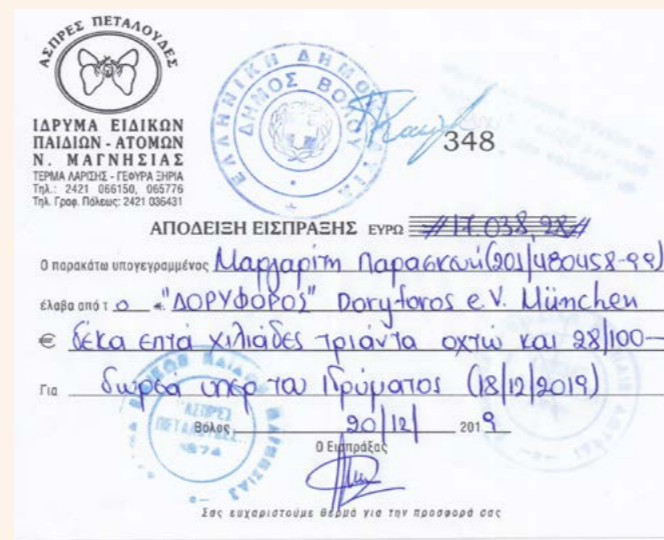 ΑΣΠΡΕΣ ΠΕΤΑΛΟΥΔΕΣ
ΙΔΡΥΜΑ ΕΙΔΙΚΩΝ
ΠΑΙΔΙΩΝ - ΑΤΟΜΩΝ
Ν. ΜΑΓΝΗΣΙΑΣ
ΤΕΡΜΑ ΛΑΡΙΣΗΣ - ΓΕΦΥΡΑ ΞΗΡΙΑ
Τηλ.: 2421 066150, 065776
Τηλ. Γραφ. Πόλεως: 2421 036431
ΕΛΛΗΝΙΚΗ ΔΗΜΟΚΡΑΤΙΑ
ΔΗΜΟΣ ΒΟΛΟΥ
348
ΑΠΟΔΕΙΞΗ ΕΙΣΠΡΑΞΗΣ ΕΥΡΩ #17.038,28#
Ο παρακάτω υπογεγραμμένος Μαργαρίτη Παρασκευή (201/480458-99)
έλαβα από τ ο "ΔΟΡΥΦΟΡΟΣ" Doryforos e.V. München
€ δέκα επτά χιλιάδες τριάντα οχτώ και 28/100-
Για δωρεά υπέρ του Ιδρύματος (18/12/2019)
ΑΣΠΡΕΣ
ΠΕΤΑΛΟΥΔΕΣ
Βόλος 20/12/ 2019
Ο Εισπράξας
Σας ευχαριστούμε θερμά για την προσφορά σας